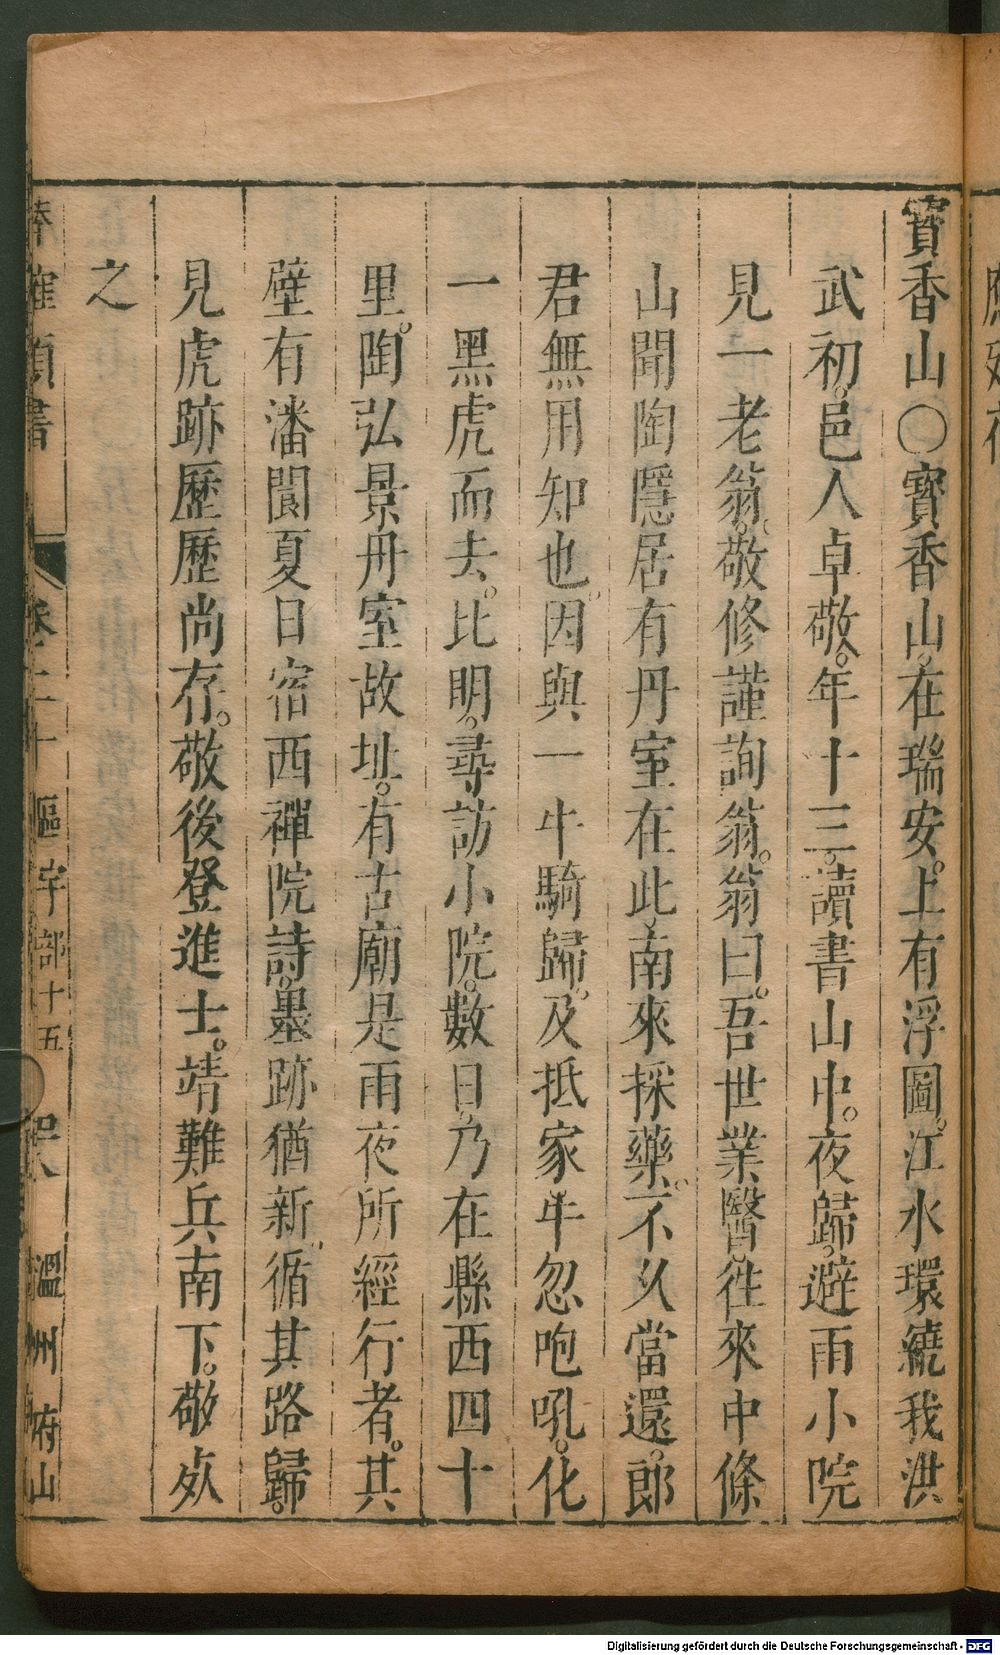 寳香山○寳香山。在瑞安。上有浮圖。江水環繞我洪
武初。邑人卓敬。年十三。讀書山中。夜歸。避雨小院
見一老翁。敬修謹詢翁。翁曰。吾世業醫。徃來中條
山聞陶隱居有丹室在此。南來採藥。不久當還。郎
君無用知也。因與一牛騎歸。及抵家牛忽咆吼。化
一黑虎而去。比明。尋訪小院。數日。乃在縣西四十
里。陶弘景丹室故址。有古廟是雨夜所經行者。其
壁有潘閬夏日宿西禪院詩。墨跡猶新。循其路歸。
見虎跡歷歷尚存。敬後登進士。靖難兵南下。敬死
之
潛確類書 卷之二十 區宇部十五 溫州府山
Digitalisierung gefördert durch die Deutsche Forschungsgemeinschaft - DFG